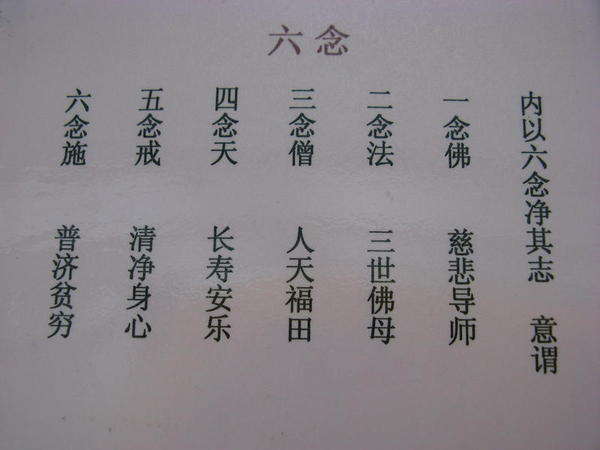 六念
内以六念净其志 意谓
一念佛 慈悲导师
二念法 三世佛母
三念僧 人天福田
四念天 长寿安乐
五念戒 清净身心
六念施 普济贫穷